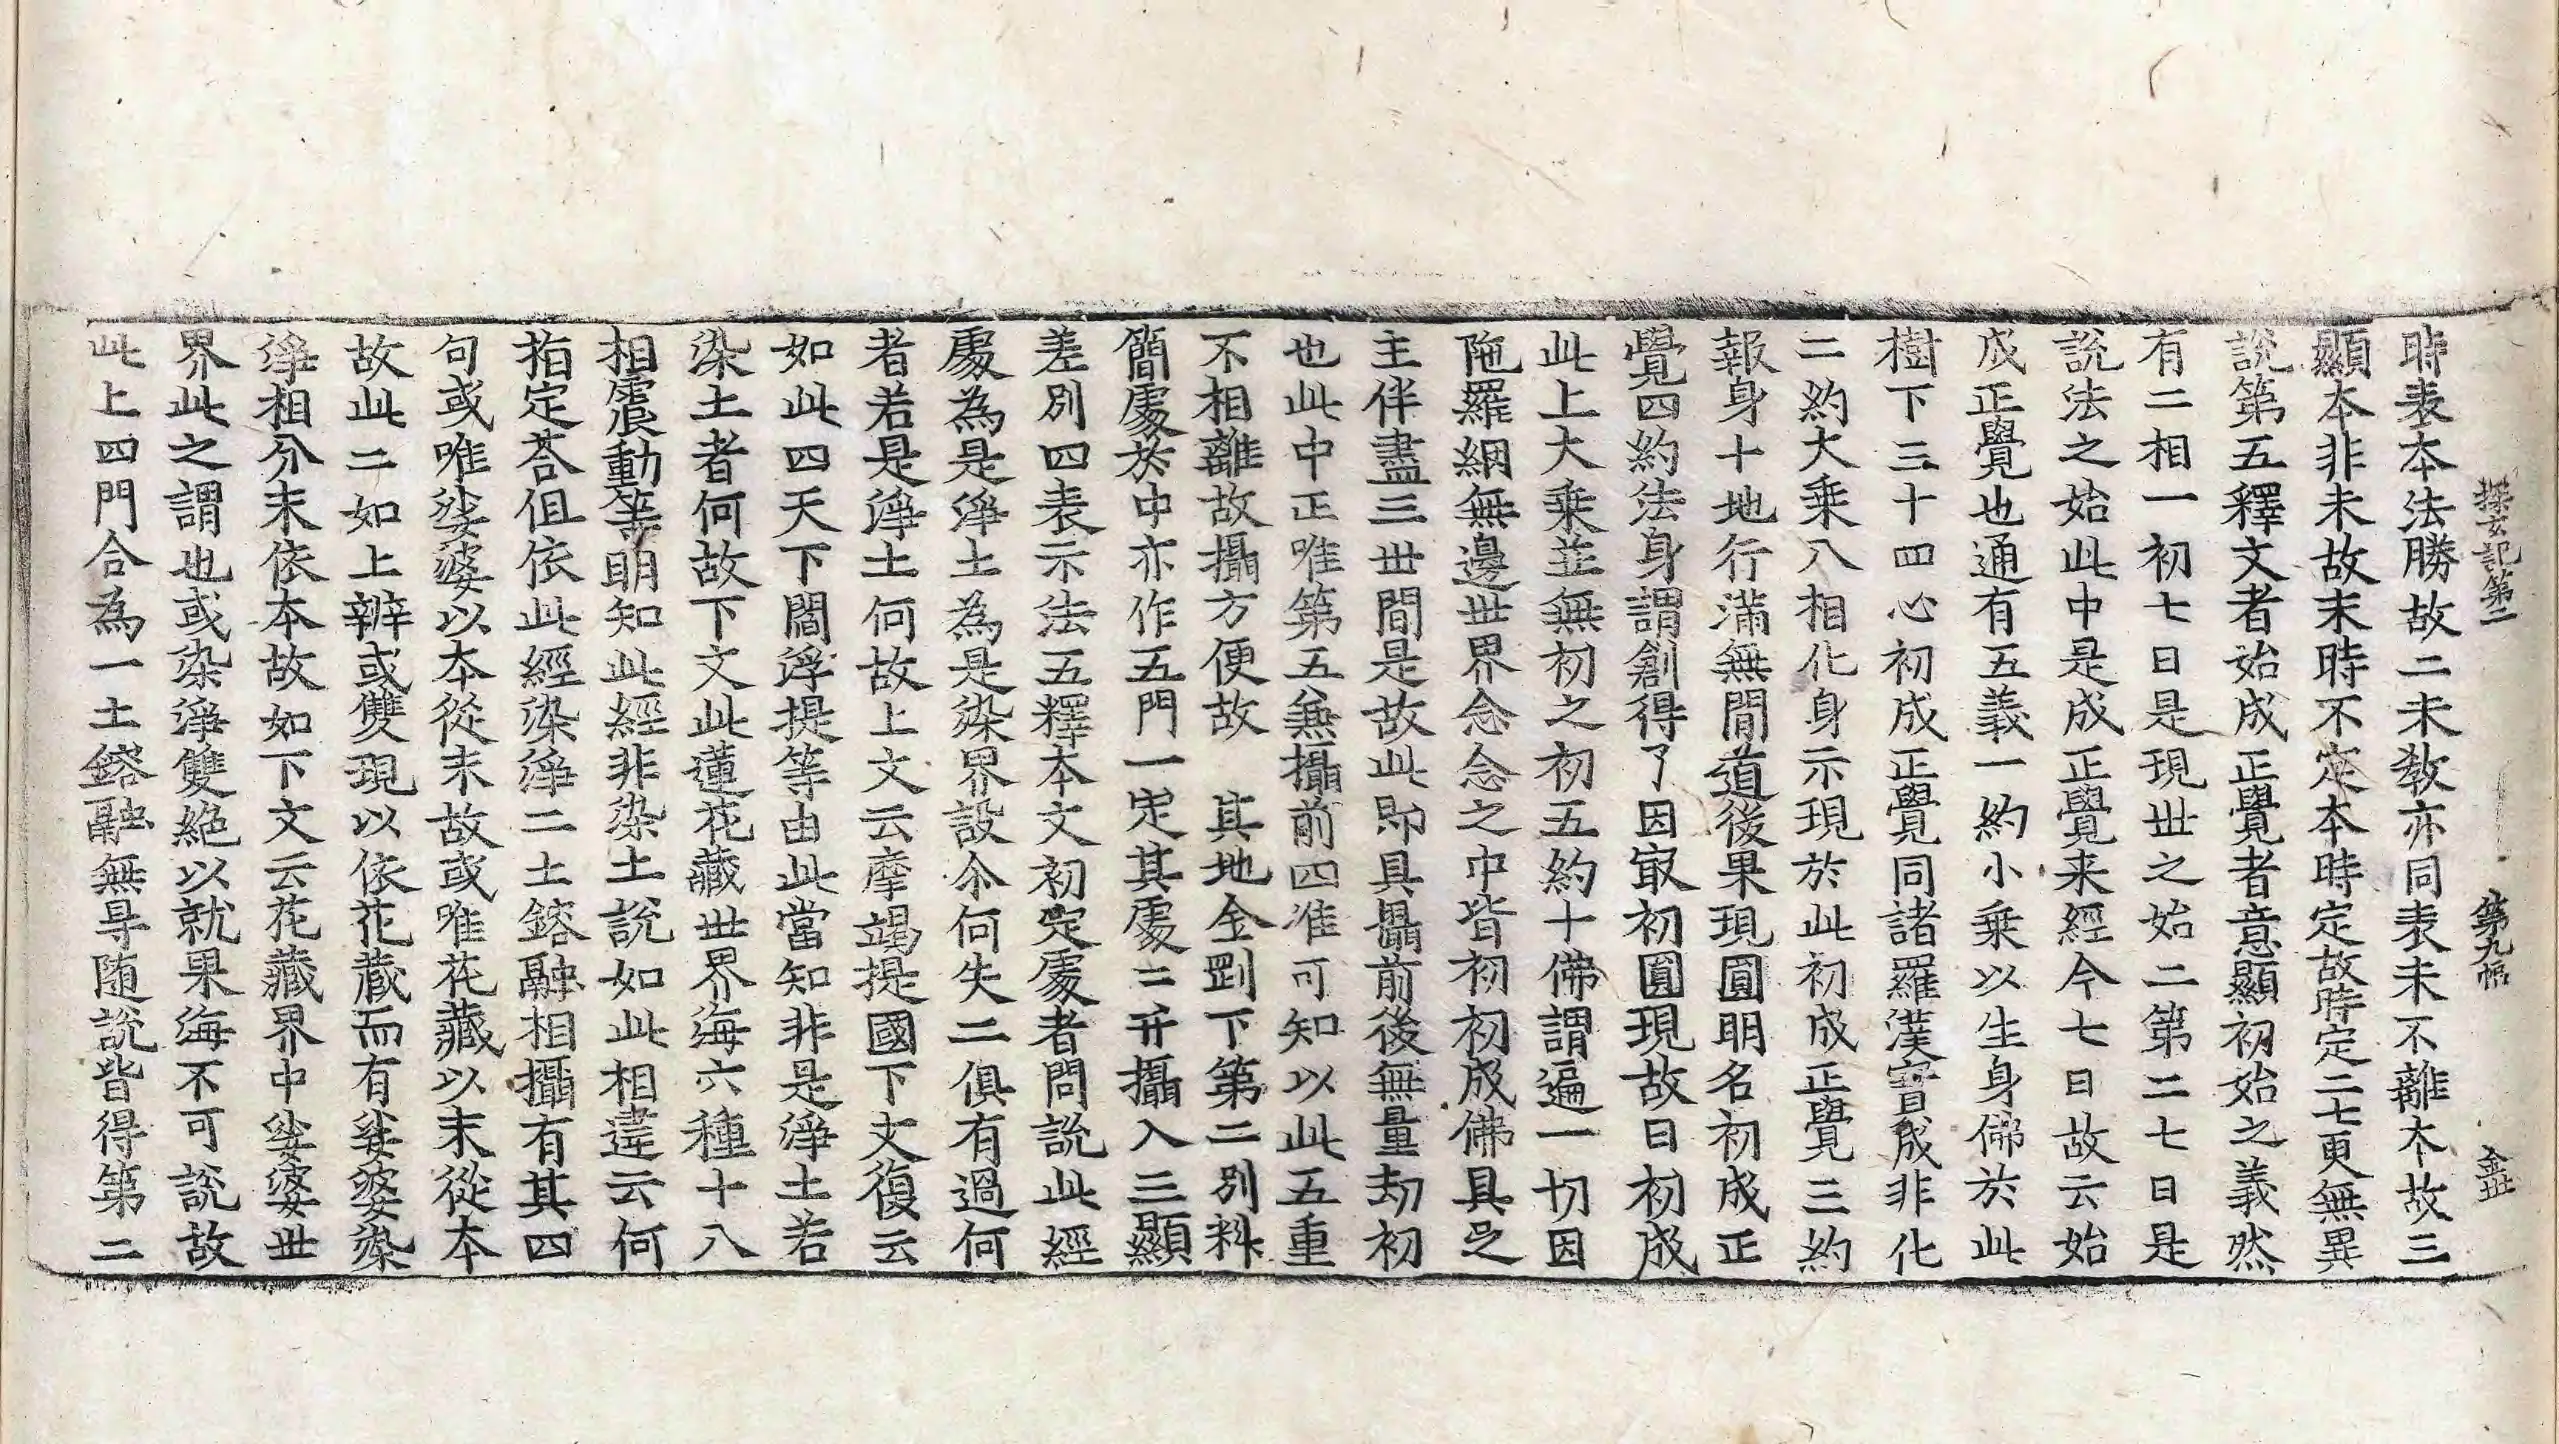 探玄記第二　第九幅　金世
時表本法勝故二末教亦同表末不離本故三
顯本非末故末時不定本時定故時定二七更無異
説第五釋文者始成正覺者意顯初始之義然
有二相一初七日是現世之始二第二七日是
説法之始此中是成正覺来經今七日故云始
成正覺也通有五義一約小乗以生身佛於此
樹下三十四心初成正覺同諸羅漢實成非化
二約大乗八相化身示現於此初成正覺三約
報身十地行滿無間道後果現圓明名初成正
覺四約法身謂創得了因㝡初圓現故曰初成
此上大乗並無初之初五約十佛謂遍一切因
陁羅網無邊世界念念之中皆初初成佛具足
主伴盡三世間是故此即具攝前後無量劫初
也此中正唯第五兼攝前四准可知以此五重
不相離故攝方便故　其地金剛下第二別料
簡處於中亦作五門一定其處二开攝入三顯
差別四表示法五釋本文初定處者問説此經
處為是淨土為是染界設令何失二俱有過何
者若是淨土何故上文云摩竭提國下文復云
如此四天下閻浮提等由此當知非是淨土若
染土者何故下文此蓮花藏世界海六種十八
相震動等明知此經非染土説如此相違云何
指定荅但依此經染淨二土鎔融相攝有其四
句或唯娑婆以本從末故或唯花藏以末從本
故此二如上辨或雙現以依花藏而有娑婆染
淨相分末依本故如下文云花藏界中娑婆世
界此之謂也或染淨雙絶以就果海不可説故
此上四門合為一土鎔融無㝵随説皆得第二